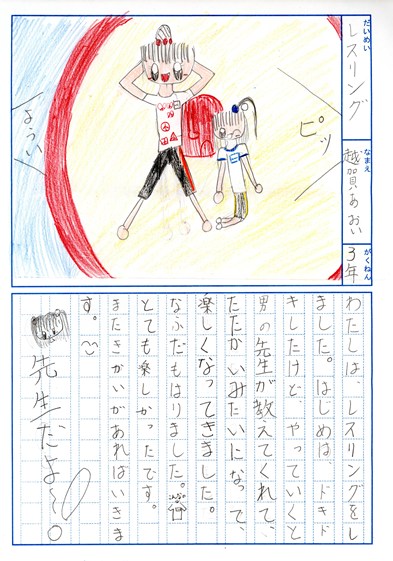 だいめい
レスリング
なまえ
越賀あおい
がくねん
3年
ピッ
ようい
わたしは、レスリングをし
ました。はじめは、ドキド
キしたけど、やっていくと
男の先生が教えてくれて、
たたかいみたいになって、
楽しくなってきました。
なふだもはりました。
とても楽しかったです。
またきかいがあればいきま
す。
先生だよ〜。